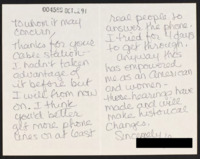 004595 OCT
91
To whom it may
concern,
Thanks for your
cable station.
I hadn't taken
advantage of
it before but
I will from now
on. I think
you'd better
get more phone
lines or at least
real people to
answer the phone.
I tried for 4 days
to get through.
Anyway this
has empowered
me as an American
and women -
those hearings have
made and will
make historical
changes.
Sincerely